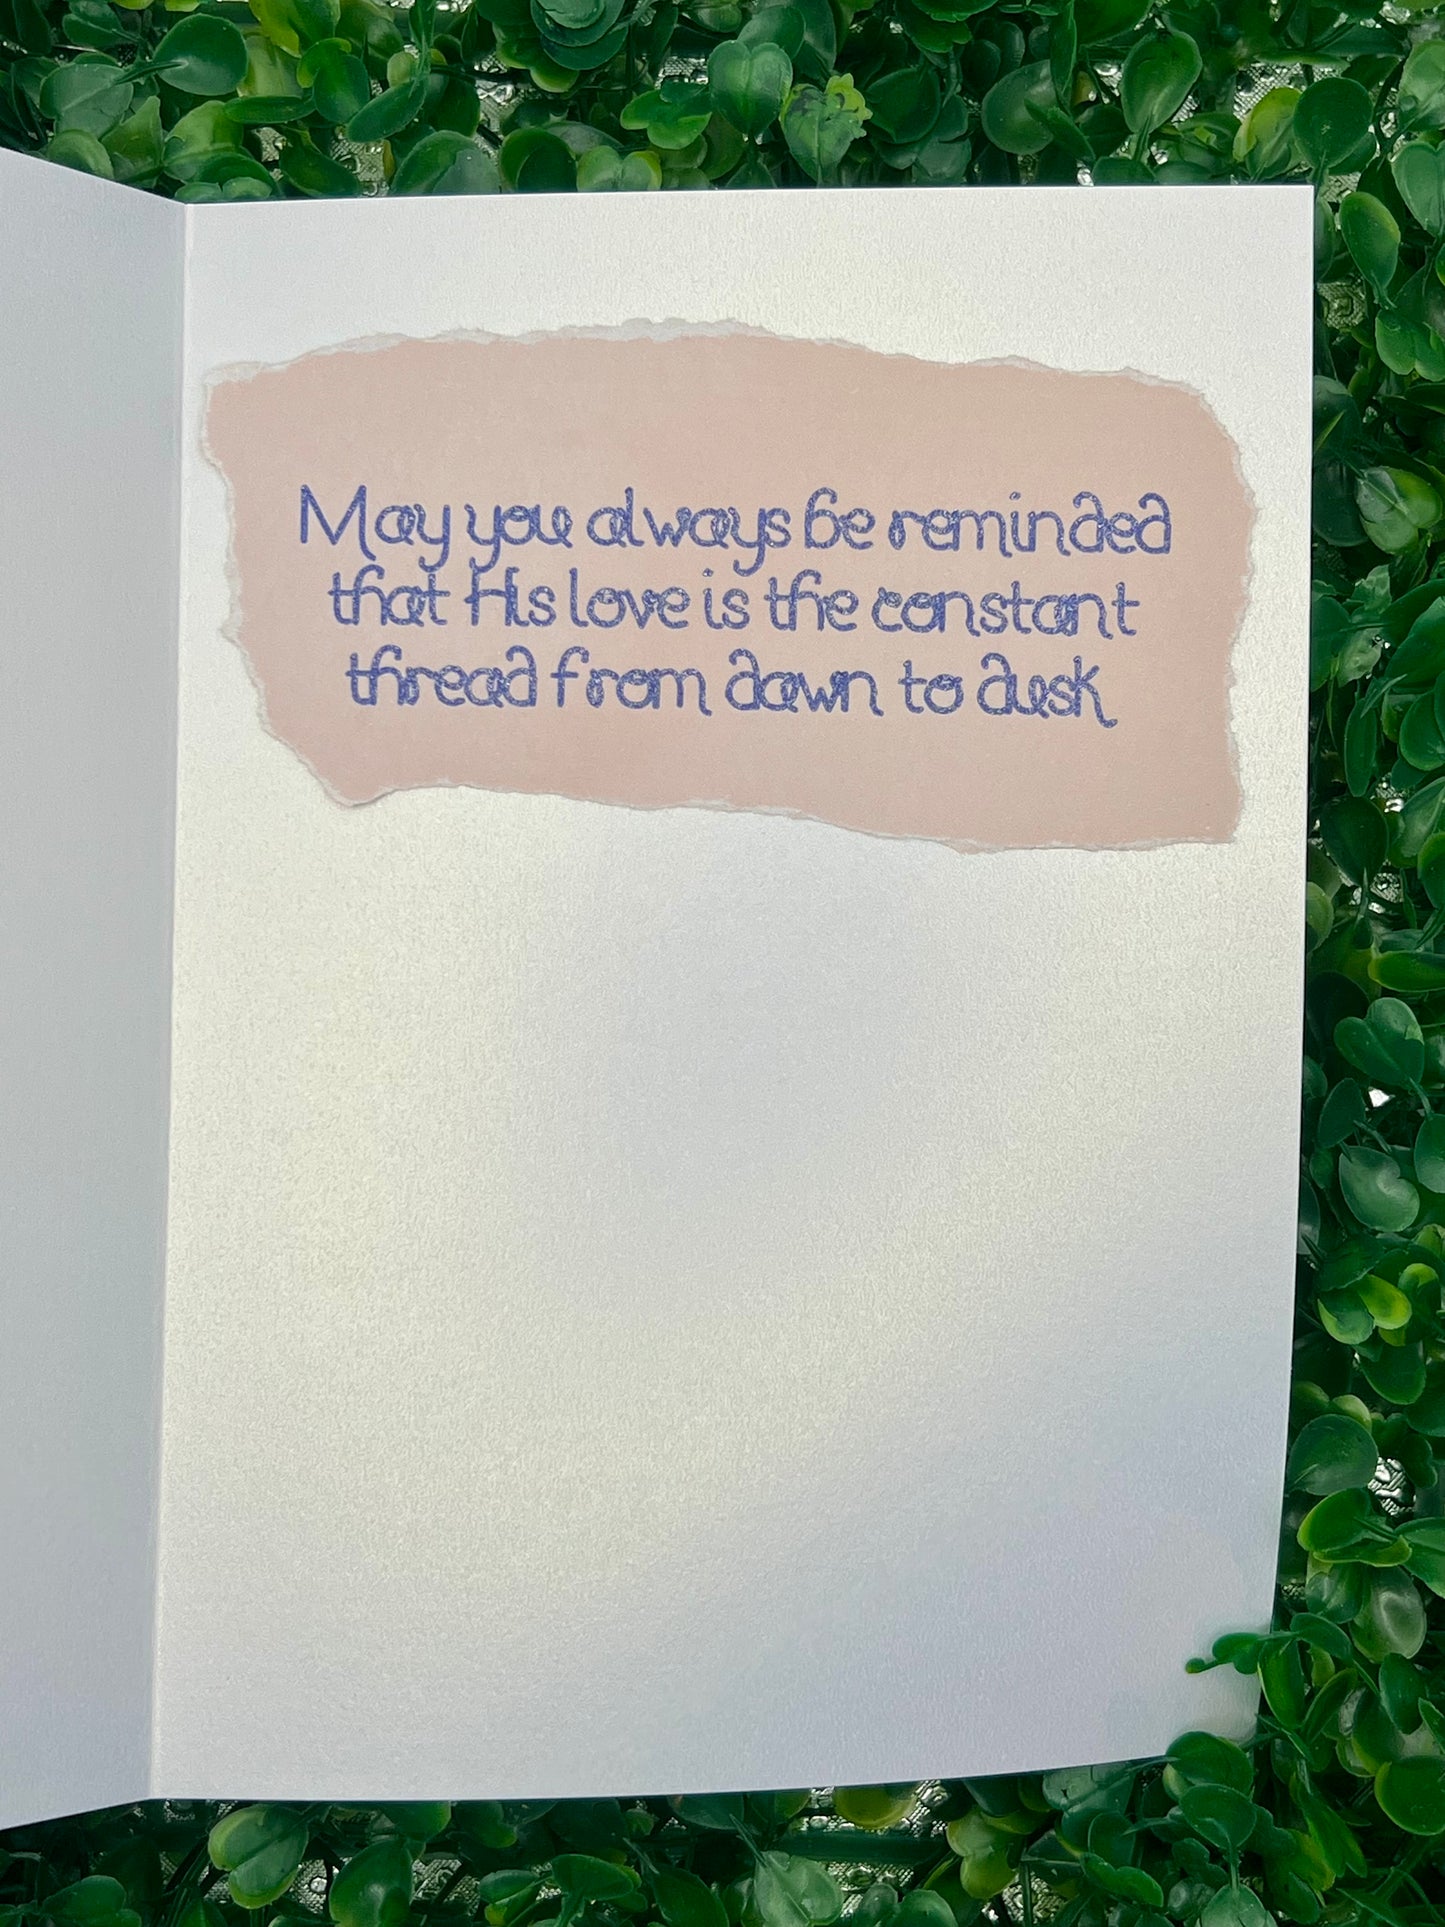 May you always be reminded
that His love is the constant
thread from dawn to dusk